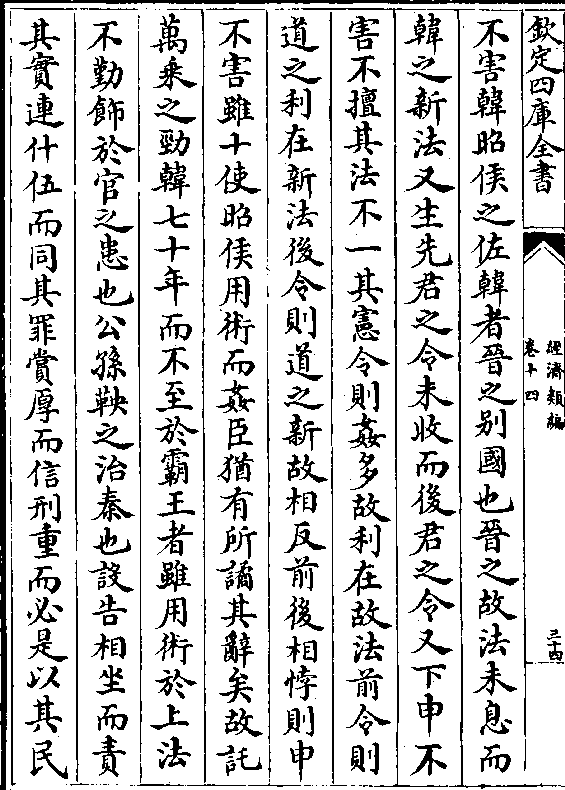 欽定四庫全書
經濟類編
卷十四
三十四
不害韓昭侯之佐韓者晉之别國也晉之故法未息而
韓之新法又生先君之令未收而後君之令又下申不
害不擅其法不一其憲令則姦多故利在故法前令則
道之利在新法後令則道之新故相反前後相悖則申
不害雖十使昭侯用術而姦臣猶有所譎其辭矣故託
萬乘之勁韓七十年而不至於霸王者雖用術於上法
不勤飾於官之患也公孫鞅之治秦也設告相坐而責
其實連什伍而同其罪賞厚而信刑重而必是以其民